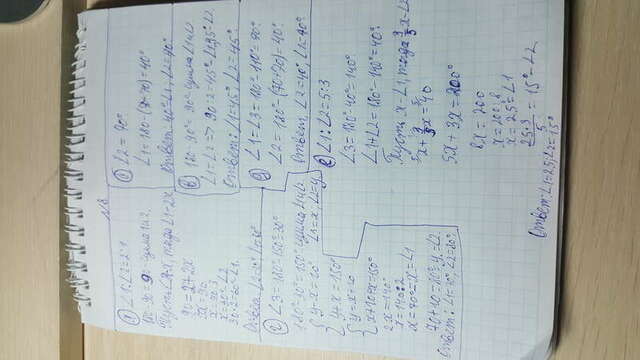 N8
① ∠1:∠2=2:1
180-90=90-сумма 1и2.
Пусть ∠2-x, тогда ∠1-2x
90=x+2x
3x=90
x=90:3
x=30°-∠2
30·2=60°-∠1.
Ответ: ∠2=30°, ∠1=60°
② ∠3=180°-150°=30°
180°-30°=150° сумма ∠1и∠2.
y-x=10° ∠1=x, ∠2=y
y+x=150°
y=x+10
x+10+x=150°
2x=140°
x=140:2
x=70°=x=∠1
70+10=80°=y-∠2.
Ответ: ∠1=70°, ∠2=80°
∠2=70°
∠1=180-(70+70)=40°
Ответ: 40°-∠1, ∠2=70°
в) 180-90°=90° сумма ∠1и∠2
∠1=∠2=> 90:2=45°-∠1и45°-∠2.
Ответ: ∠1=45°, ∠2=45°
∠1=∠3=180°-110°=70°
∠2=180°-(70+70)=40°
Ответ, ∠2=40°, ∠1=70°
е) ∠1:∠2=5:3
∠3=180°-40°=140°
∠1+∠2=180°-140°=40°
Пусть x-∠1, тогда 3/5x-∠2
x+3/5x=40
5x+3x=200°
8x=200
x=200:8
x=25°=∠1
25·3/5=15°-∠2
Ответ: ∠1=25; ∠2=15°